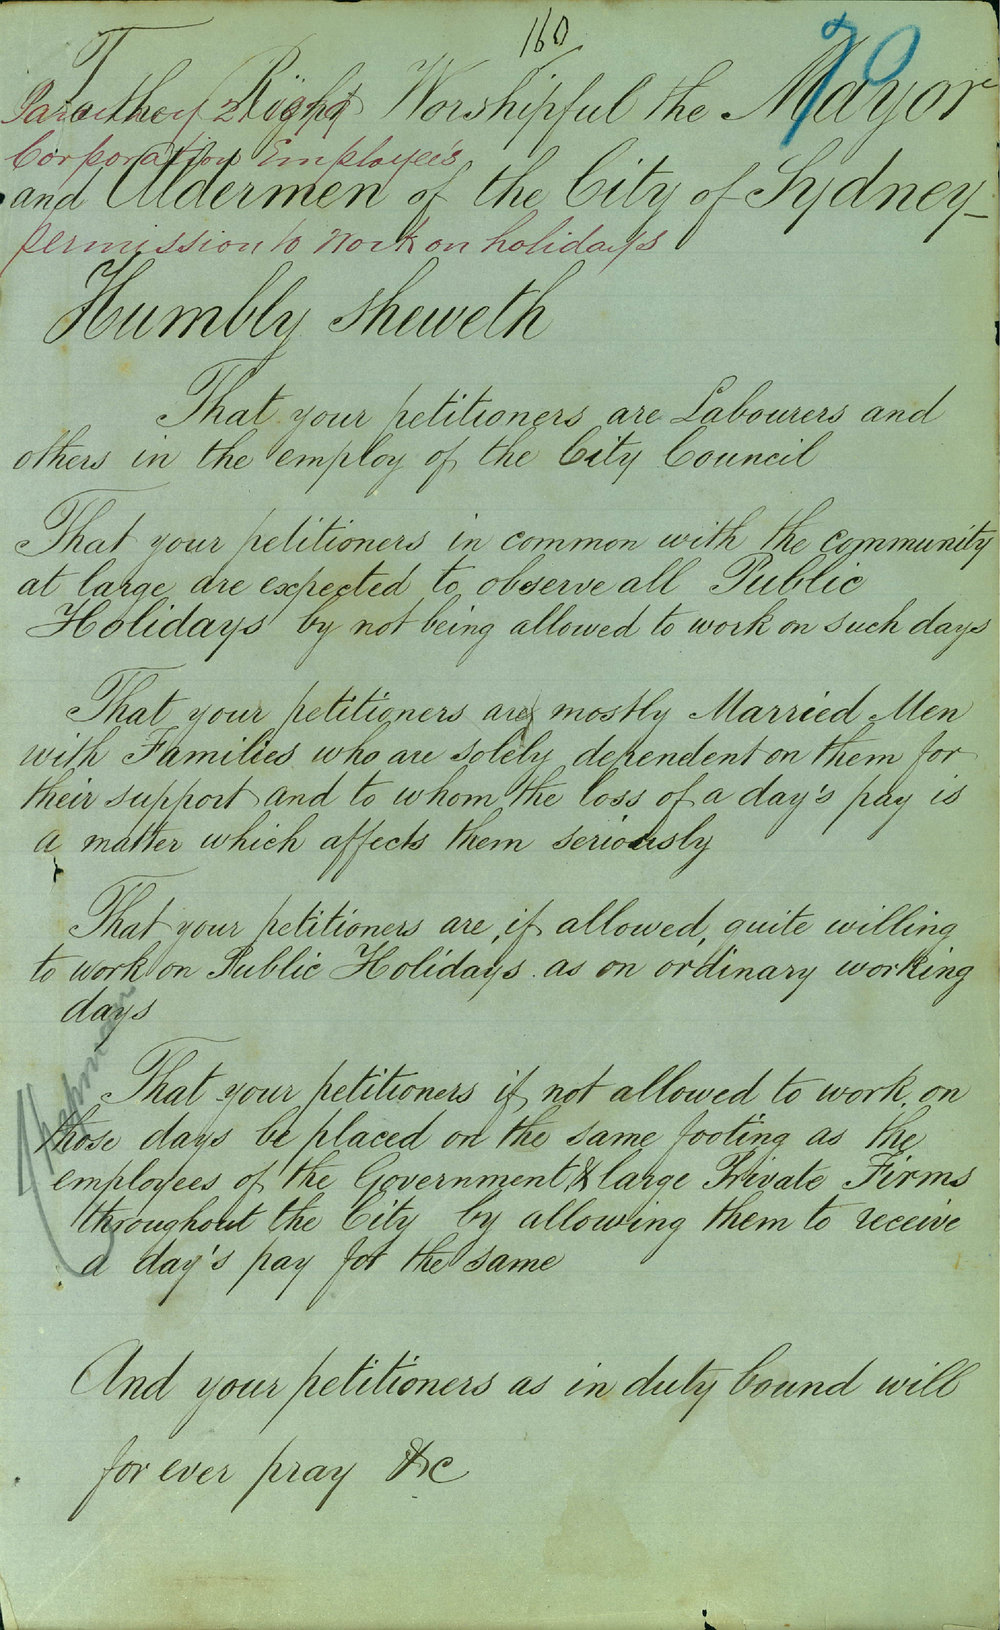 160
70
To the Right Worshipful the Mayor
Corporation Employees
and Aldermen of the City of Sydney
permission to work on holidays
Humbly sheweth
That your petitioners are Labourers and
others in the employ of the City Council
That your petitioners in common with the community
at large are expected to observe all Public
Holidays by not being allowed to work on such days
That your petitioners are mostly Married Men
with Families who are solely dependent on them for
their support and to whom the loss of a day's pay is
a matter which affects them seriously
That your petitioners are, if allowed, quite willing
to work on Public Holidays as on ordinary working
days
Chapman
That your petitioners if not allowed to work on
those days be placed on the same footing as the
employees of the Government & large Private Firms
throughout the City by allowing them to receive
a day's pay for the same
And your petitioners as in duty bound will
for ever pray &c